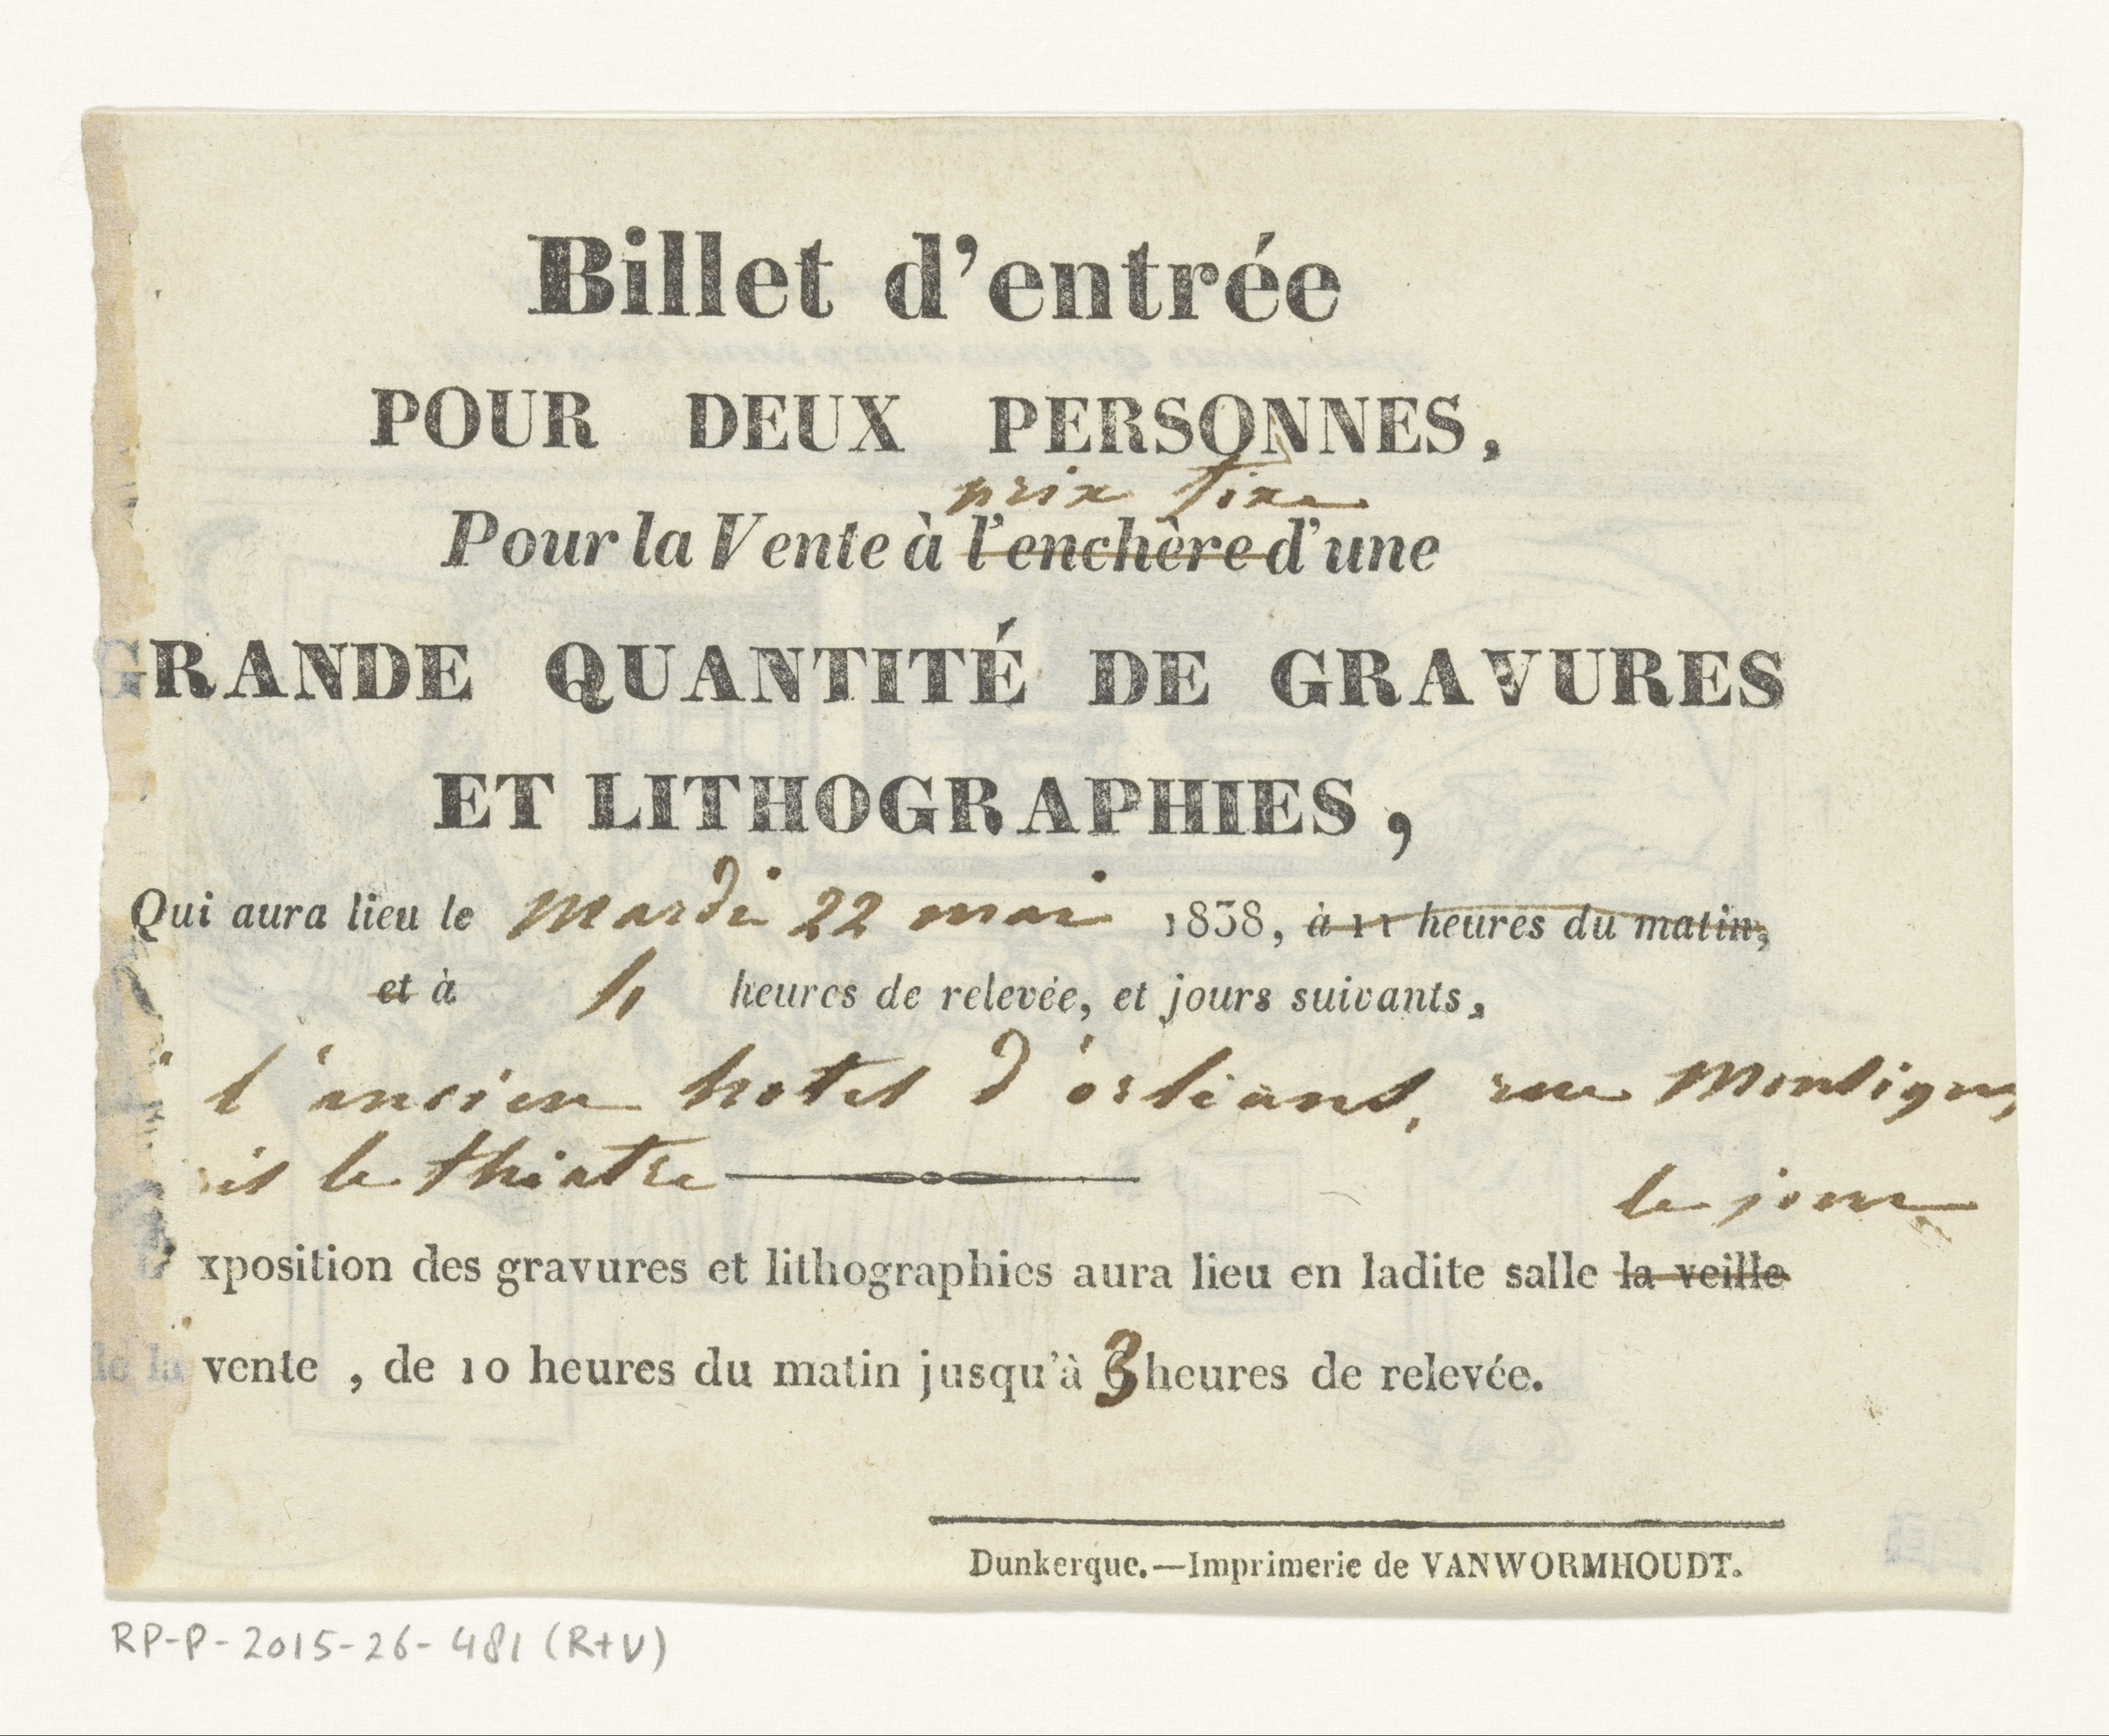 Billet d'entrée
POUR DEUX PERSONNES,
prix fixe
Pour la Vente à l'enchère d'une
GRANDE QUANTITÉ DE GRAVURES
ET LITHOGRAPHIES,
Qui aura lieu le mardi 22 mai 1838, à 11 heures du matin,
et à 4 heures de relevée, et jours suivants,
l'ancien hotel d'orléans, rue Montigny
le théatre
le jour
xposition des gravures et lithographies aura lieu en ladite salle la veille
de la vente , de 10 heures du matin jusqu'à 3 heures de relevée.
Dunkerque.—Imprimerie de VANWORMHOUDT.
RP-P-2015-26-481 (R+V)